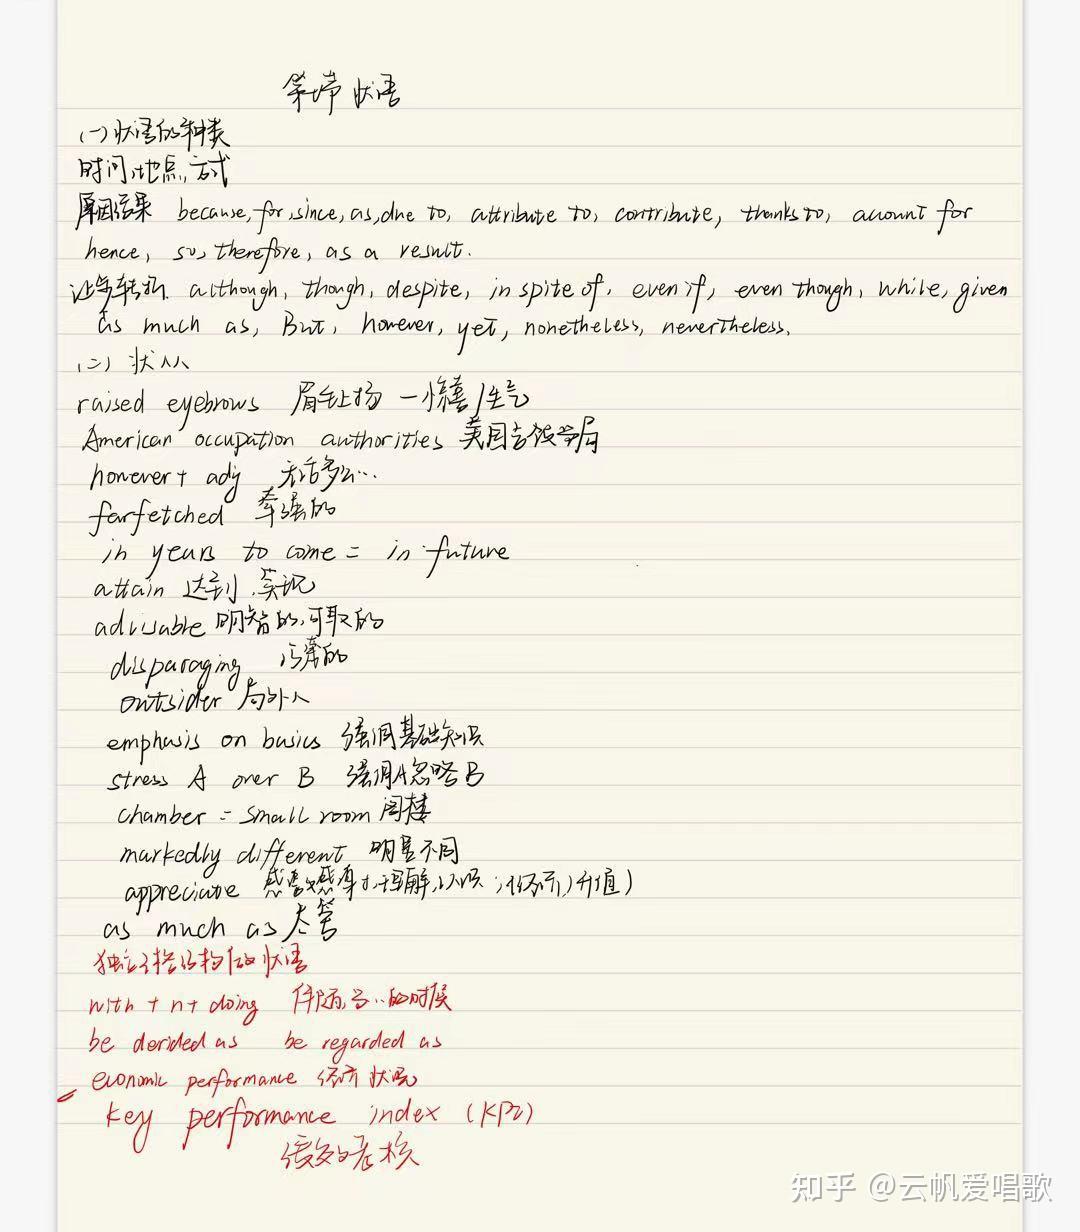 第七章 状语
(一)状语的种类
时间,地点,方式
原因结果 because, for, since, as, due to, attribute to, contribute, thanks to, account for
hence, so, therefore, as a result.
让步转折. although, though, despite, in spite of, even if, even though, while, given
as much as, But, however, yet, nonetheless, nevertheless.
(二)状从
raised eyebrows 眉毛上扬 — 惊喜/生气
American occupation authorities 美国占领当局
however + adj 无论多么..
farfetched 牵强的
in years to come = in future
attain 达到,实现
advisable 明智的,可取的
disparaging 的
outsider 局外人
emphasis on basics 强调基础知识
stress A over B 强调A忽略B
chamber = small room 阁楼
markedly different 明显不同
appreciate 感激 理解,认识,(经济)升值)
as much as 尽管
独立主格结构做状语
with + n + doing 伴随,当..的时候
be derided as be regarded as
economic performance 经济状况
key performance index (KPI)
绩效的考核
知乎 @云帆爱唱歌